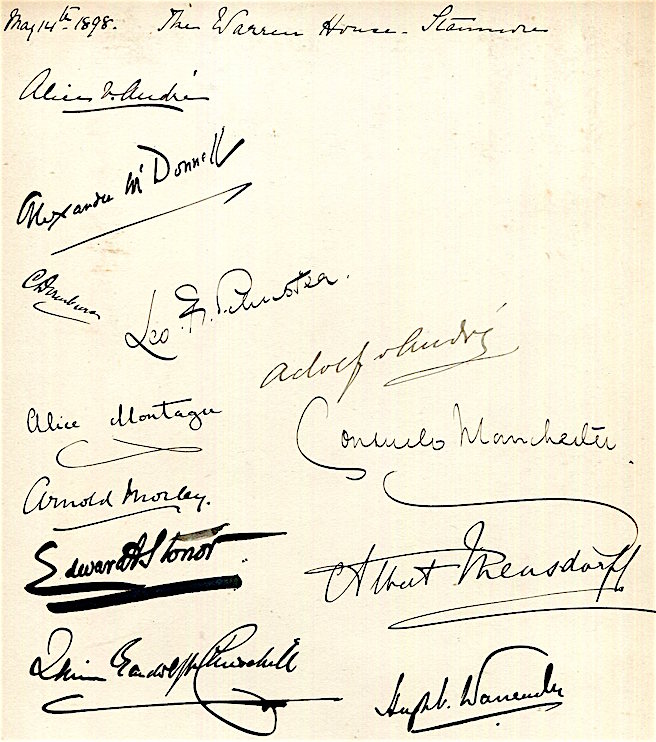 May 14th 1898. The Warren House - Stanmore
Alice v. André
Alexander McDonnell
Leo. F.
Adolf v André
Alice Montagu
Consuelo Manchester.
Arnold Morley.
Edward Stonor
Albert Mensdorff
Randolph Churchill
Hugh Warrender